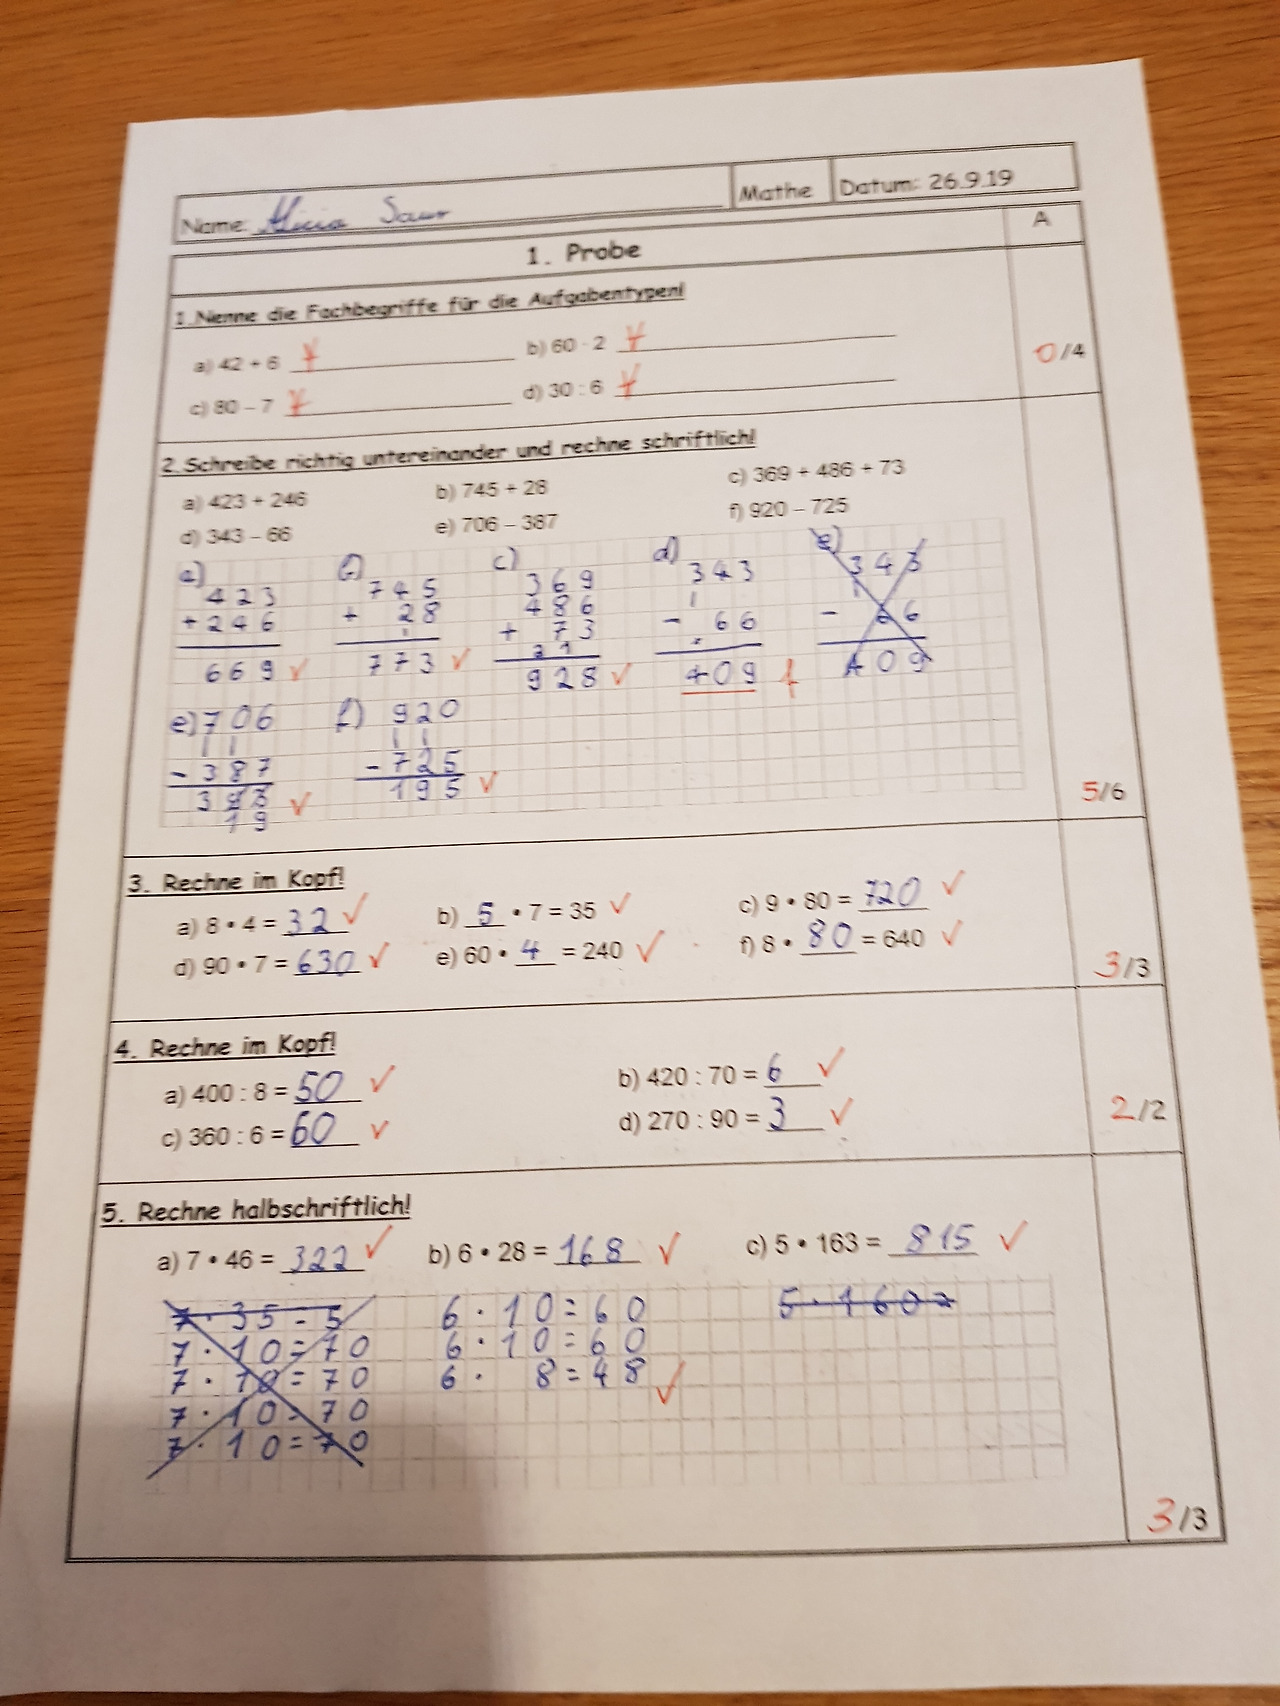 Name: Alicia Saur
Mathe
Datum: 26.9.19
1. Probe
A
1. Nenne die Fachbegriffe für die Aufgabentypen!
a) 42 + 6
b) 60 · 2
c) 80 – 7
d) 30 : 6
0/4
2. Schreibe richtig untereinander und rechne schriftlich!
a) 423 + 246
b) 745 + 28
c) 369 + 486 + 73
d) 343 – 66
e) 706 – 387
f) 920 – 725
a) b) c) d) e)
423 745 369 343 343
+ 246 + 28 486 1 1
1 + 73 - 66 - 66
669 773 21 409 409
928
e) 706 f) 920
1 1 1 1
- 387 - 725
3 195
19
5/6
3. Rechne im Kopf!
a) 8 • 4 = 32
b) 5 • 7 = 35
c) 9 • 80 = 720
d) 90 • 7 = 630
e) 60 • 4 = 240
f) 8 • 80 = 640
3/3
4. Rechne im Kopf!
a) 400 : 8 = 50
b) 420 : 70 = 6
c) 360 : 6 = 60
d) 270 : 90 = 3
2/2
5. Rechne halbschriftlich!
a) 7 • 46 = 322
b) 6 • 28 = 168
c) 5 • 163 = 815
7 · 35 = 5 6 · 10 = 60 5 · 160
7 · 10 = 70 6 · 10 = 60
7 · 10 = 70 6 · 8 = 48
7 · 10 = 70
7 · 10 = 70
3/3